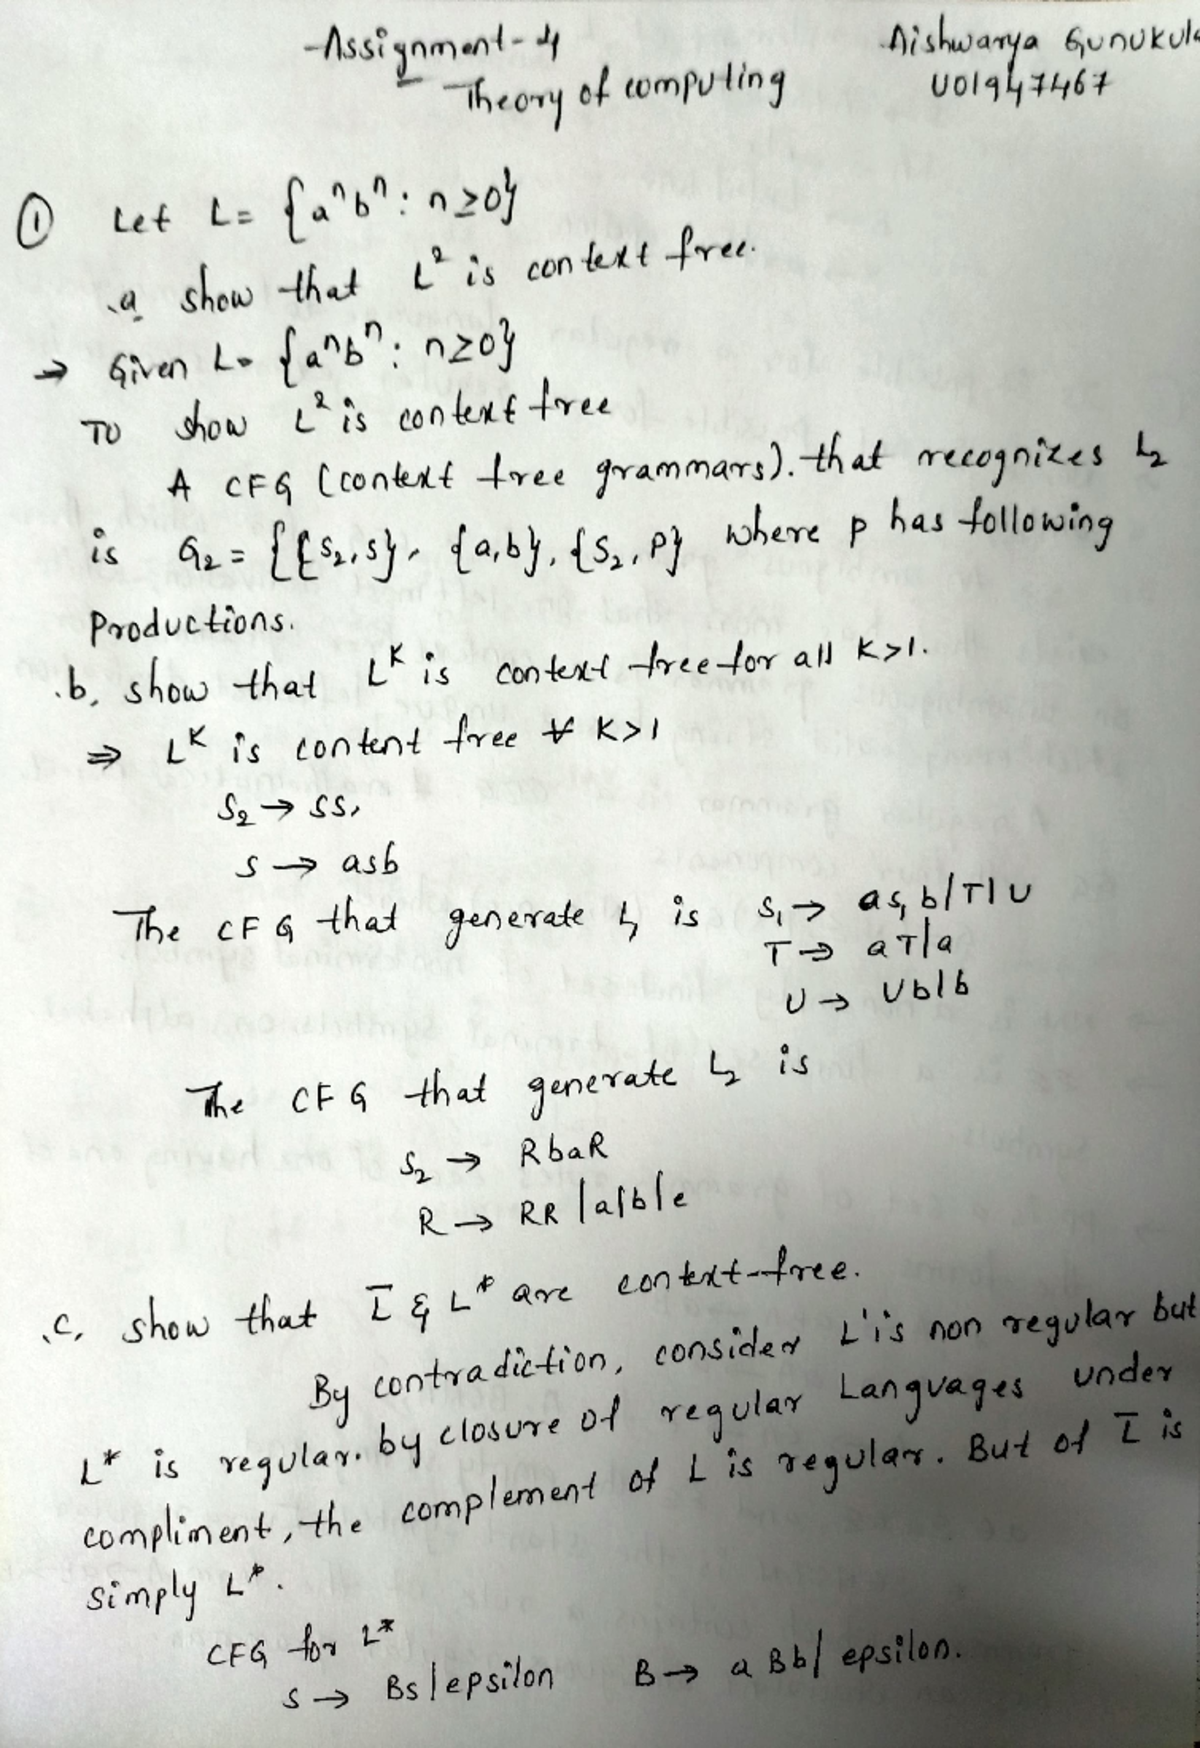 Assignment-4
Aishwarya Gunukula
Theory of computing
U01947467
① Let L = {aⁿbⁿ : n≥0}
.a show that L² is context free.
→ Given L = {aⁿbⁿ : n≥0}
To show L² is context free
A CFG (context free grammars). that recognizes L₂
is G₂ = {{S₂,s}, {a,b}, {S₂, P} where p has following
Productions.
.b, show that L^K is context free for all K>1.
⇒ L^K is content free ∀ K>1
S₂ → SS,
S → asb
The CFG that generate L₁ is S₁ → aS₁b/T|U
T → aT|a
U → Ub|b
The CFG that generate L₂ is
S₂ → RbaR
R → RR |a|b|e
.c, show that L̅ & L* are context-free.
By contradiction, consider L'is non regular but
L* is regular. by closure of regular Languages under
compliment, the complement of L is regular. But of L̅ is
simply L*.
CFG for L*
S → Bs|epsilon B → a Bb| epsilon.